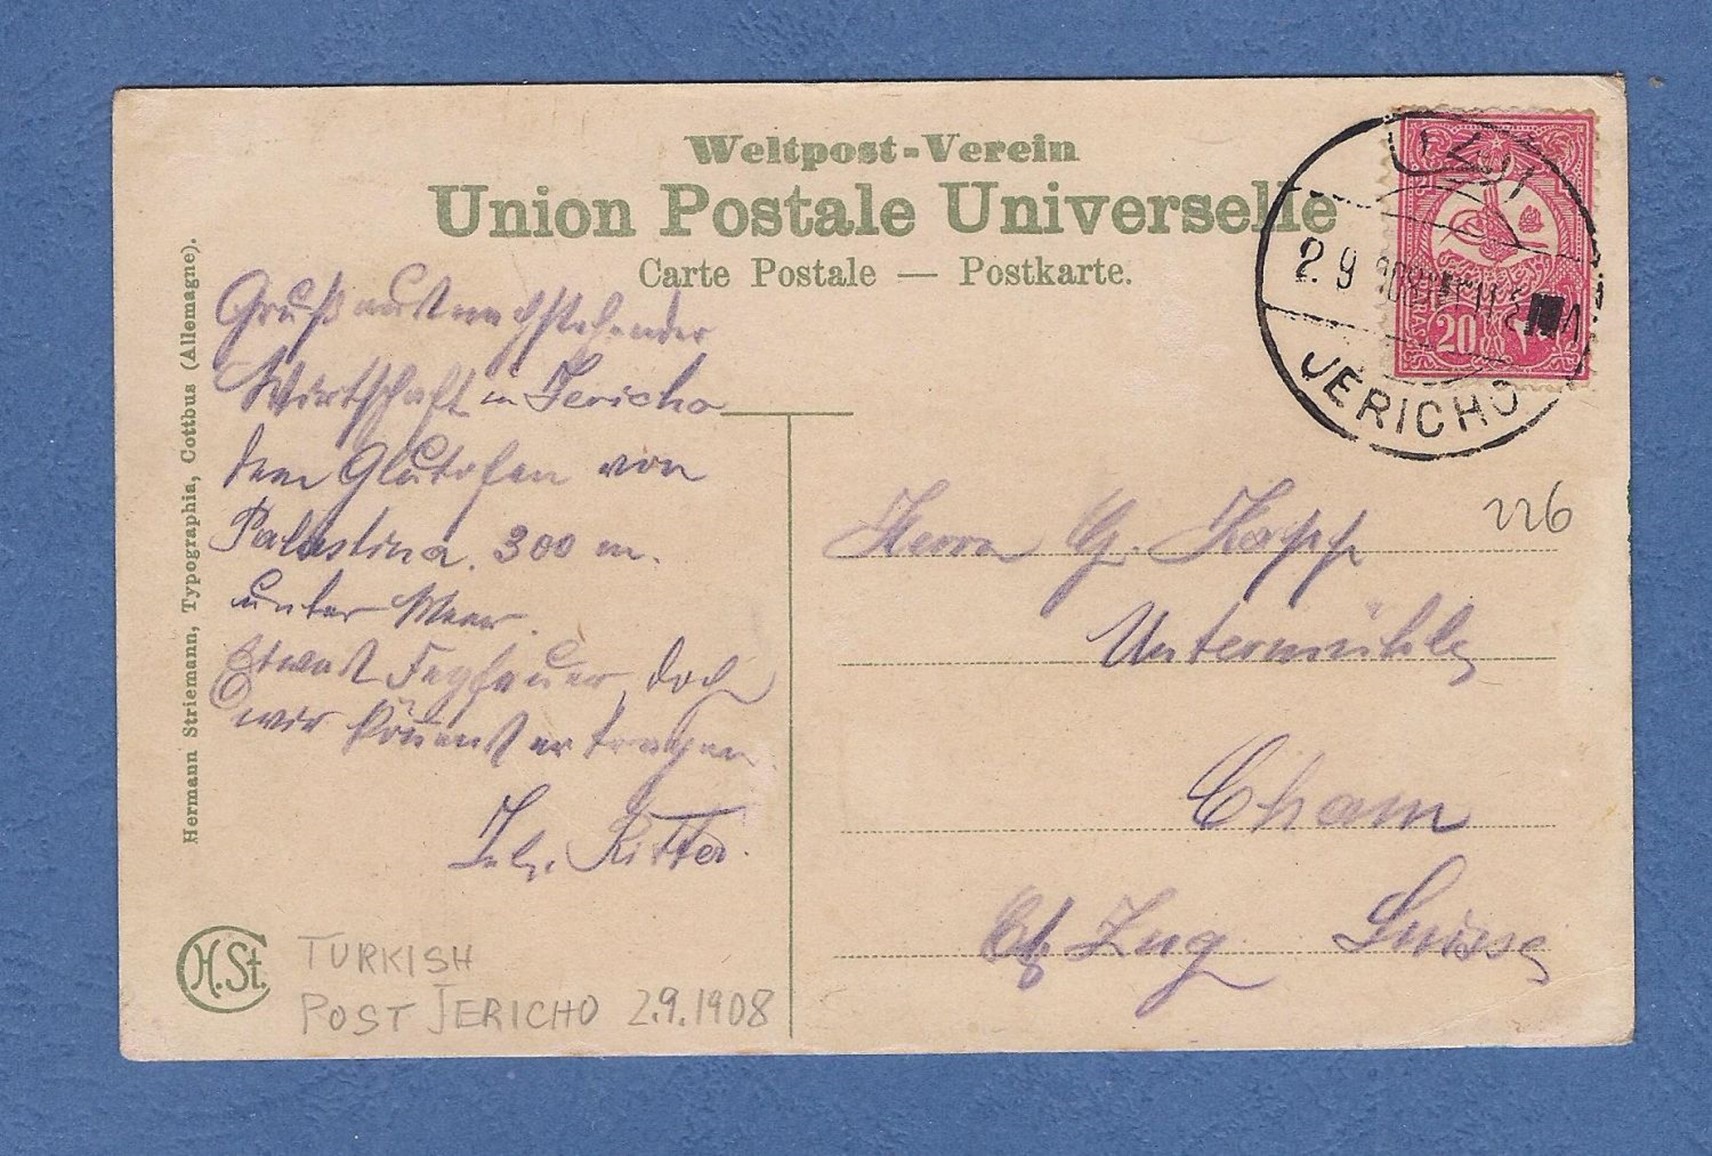 Weltpost-Verein
Union Postale Universelle
Carte Postale — Postkarte.
Hermann Striemann, Typographia, Cottbus (Allemagne).
2.9 908
JERICHO
20
٢٠
PARAS
226
Gruß aus nachstehender
Wirtschaft in Jericho
dem Glutofen von
Palästina. 300 m.
unter Meer.
Etwas Fegfeuer, doch
wir könnens ertragen.
Ritter.
Herrn G. Kopp
Untermühle
Cham
Zug Suisse
H.St.
TURKISH
POST JERICHO 2.9.1908